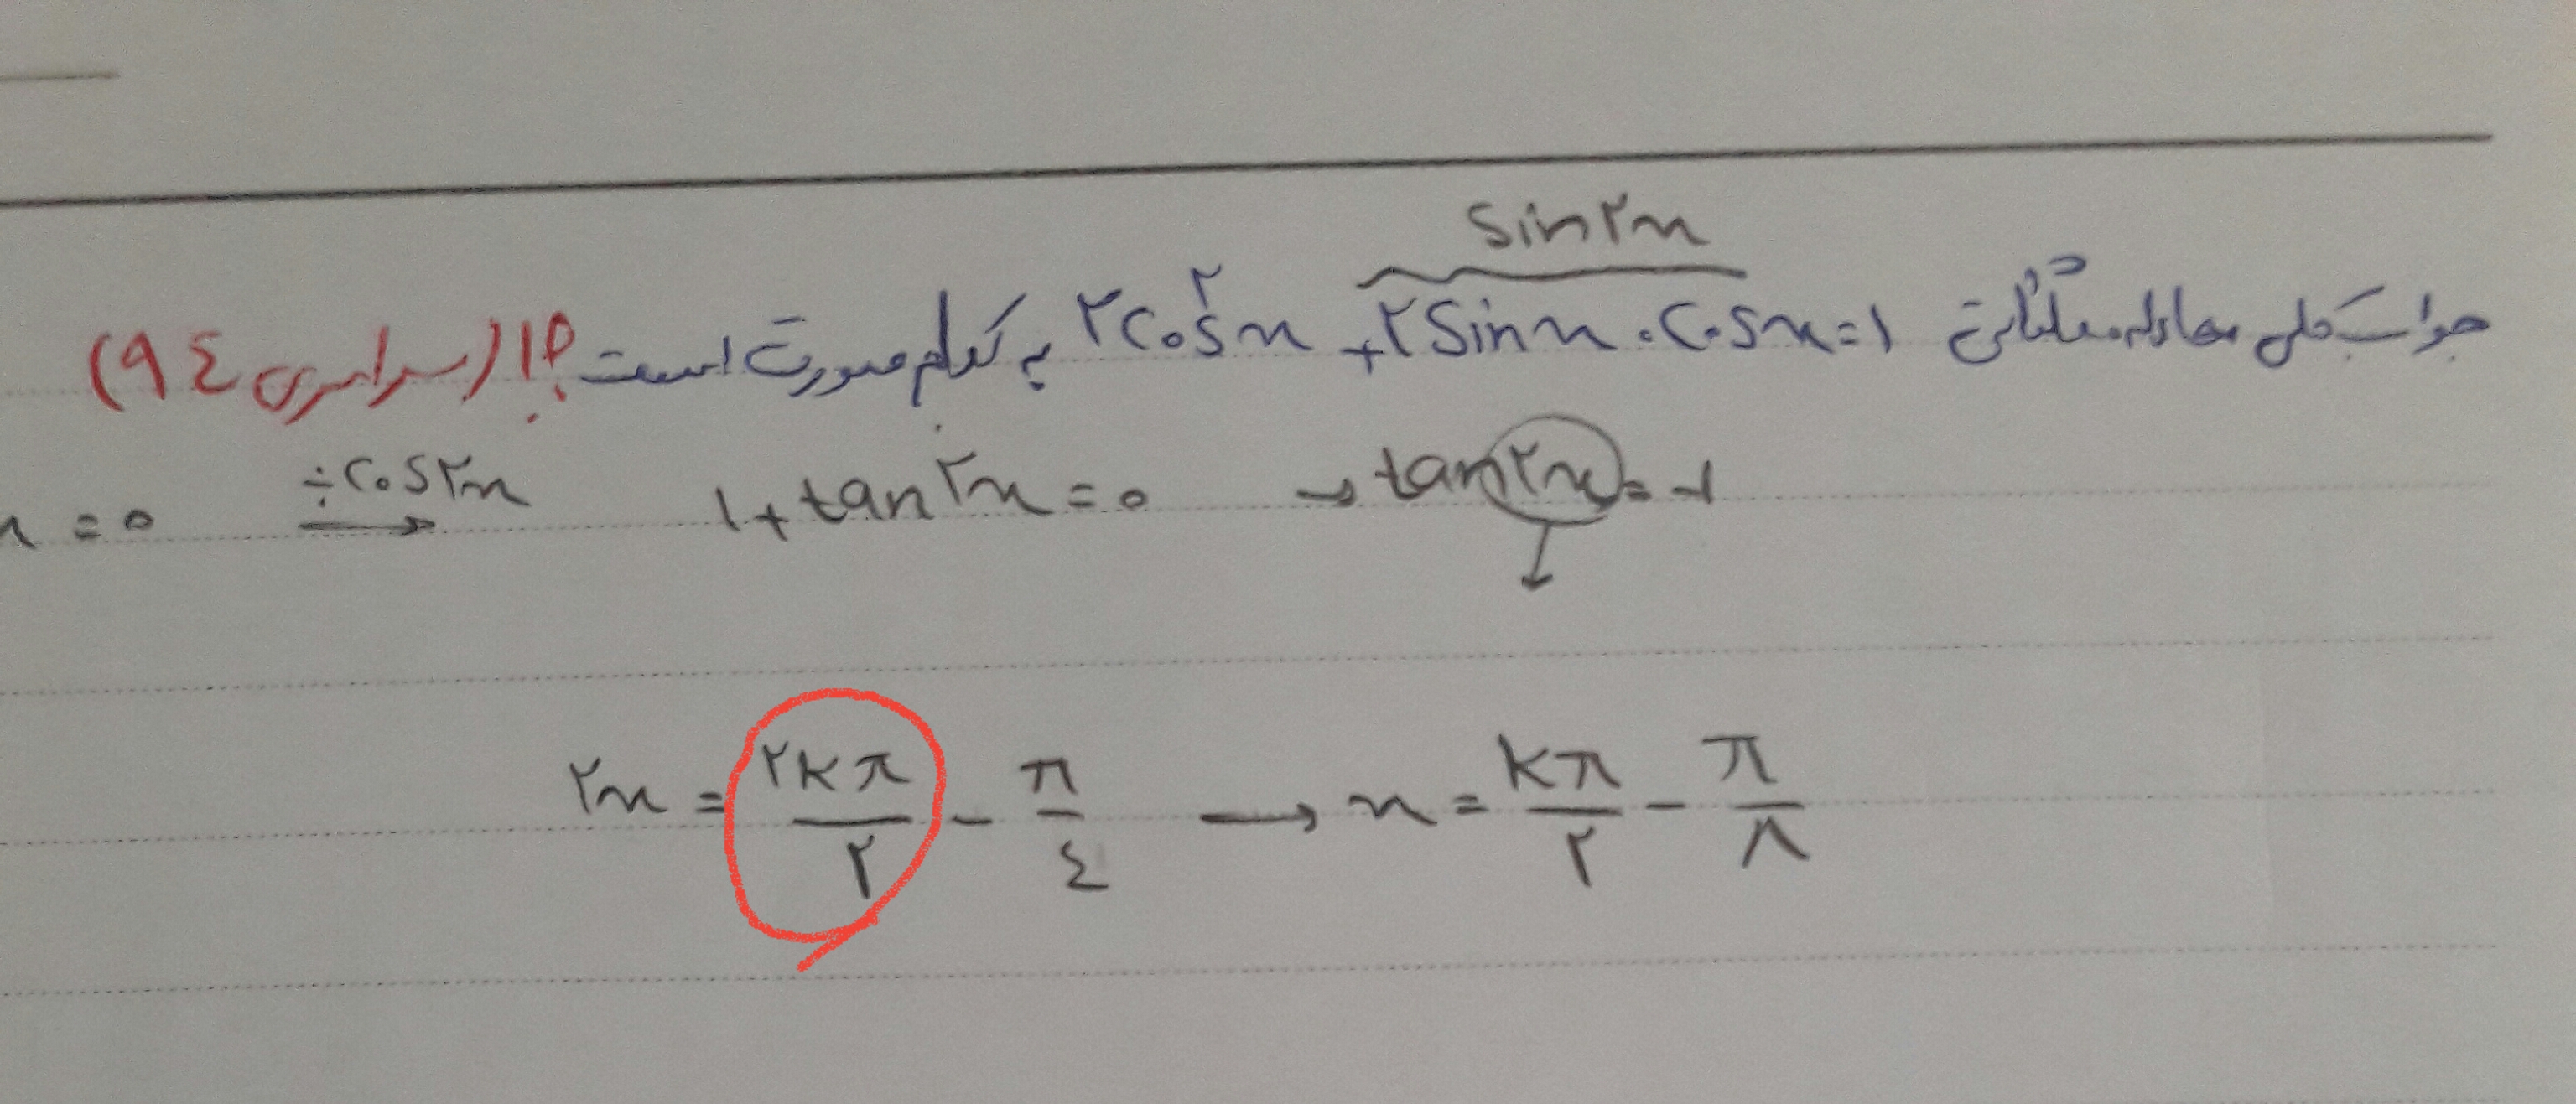 sin۲x
جواب کلی معادله مثلثاتی ۲cos²x + ۲sinx . cosx = ۱ به کدام صورت است؟! (سراسری ۹٤)
x = ۰ ÷cos۲x → ۱ + tan۲x = ۰ → tan۲x = -۱
۲x = ۲kπ/۲ - π/٤ → x = kπ/۲ - π/۸